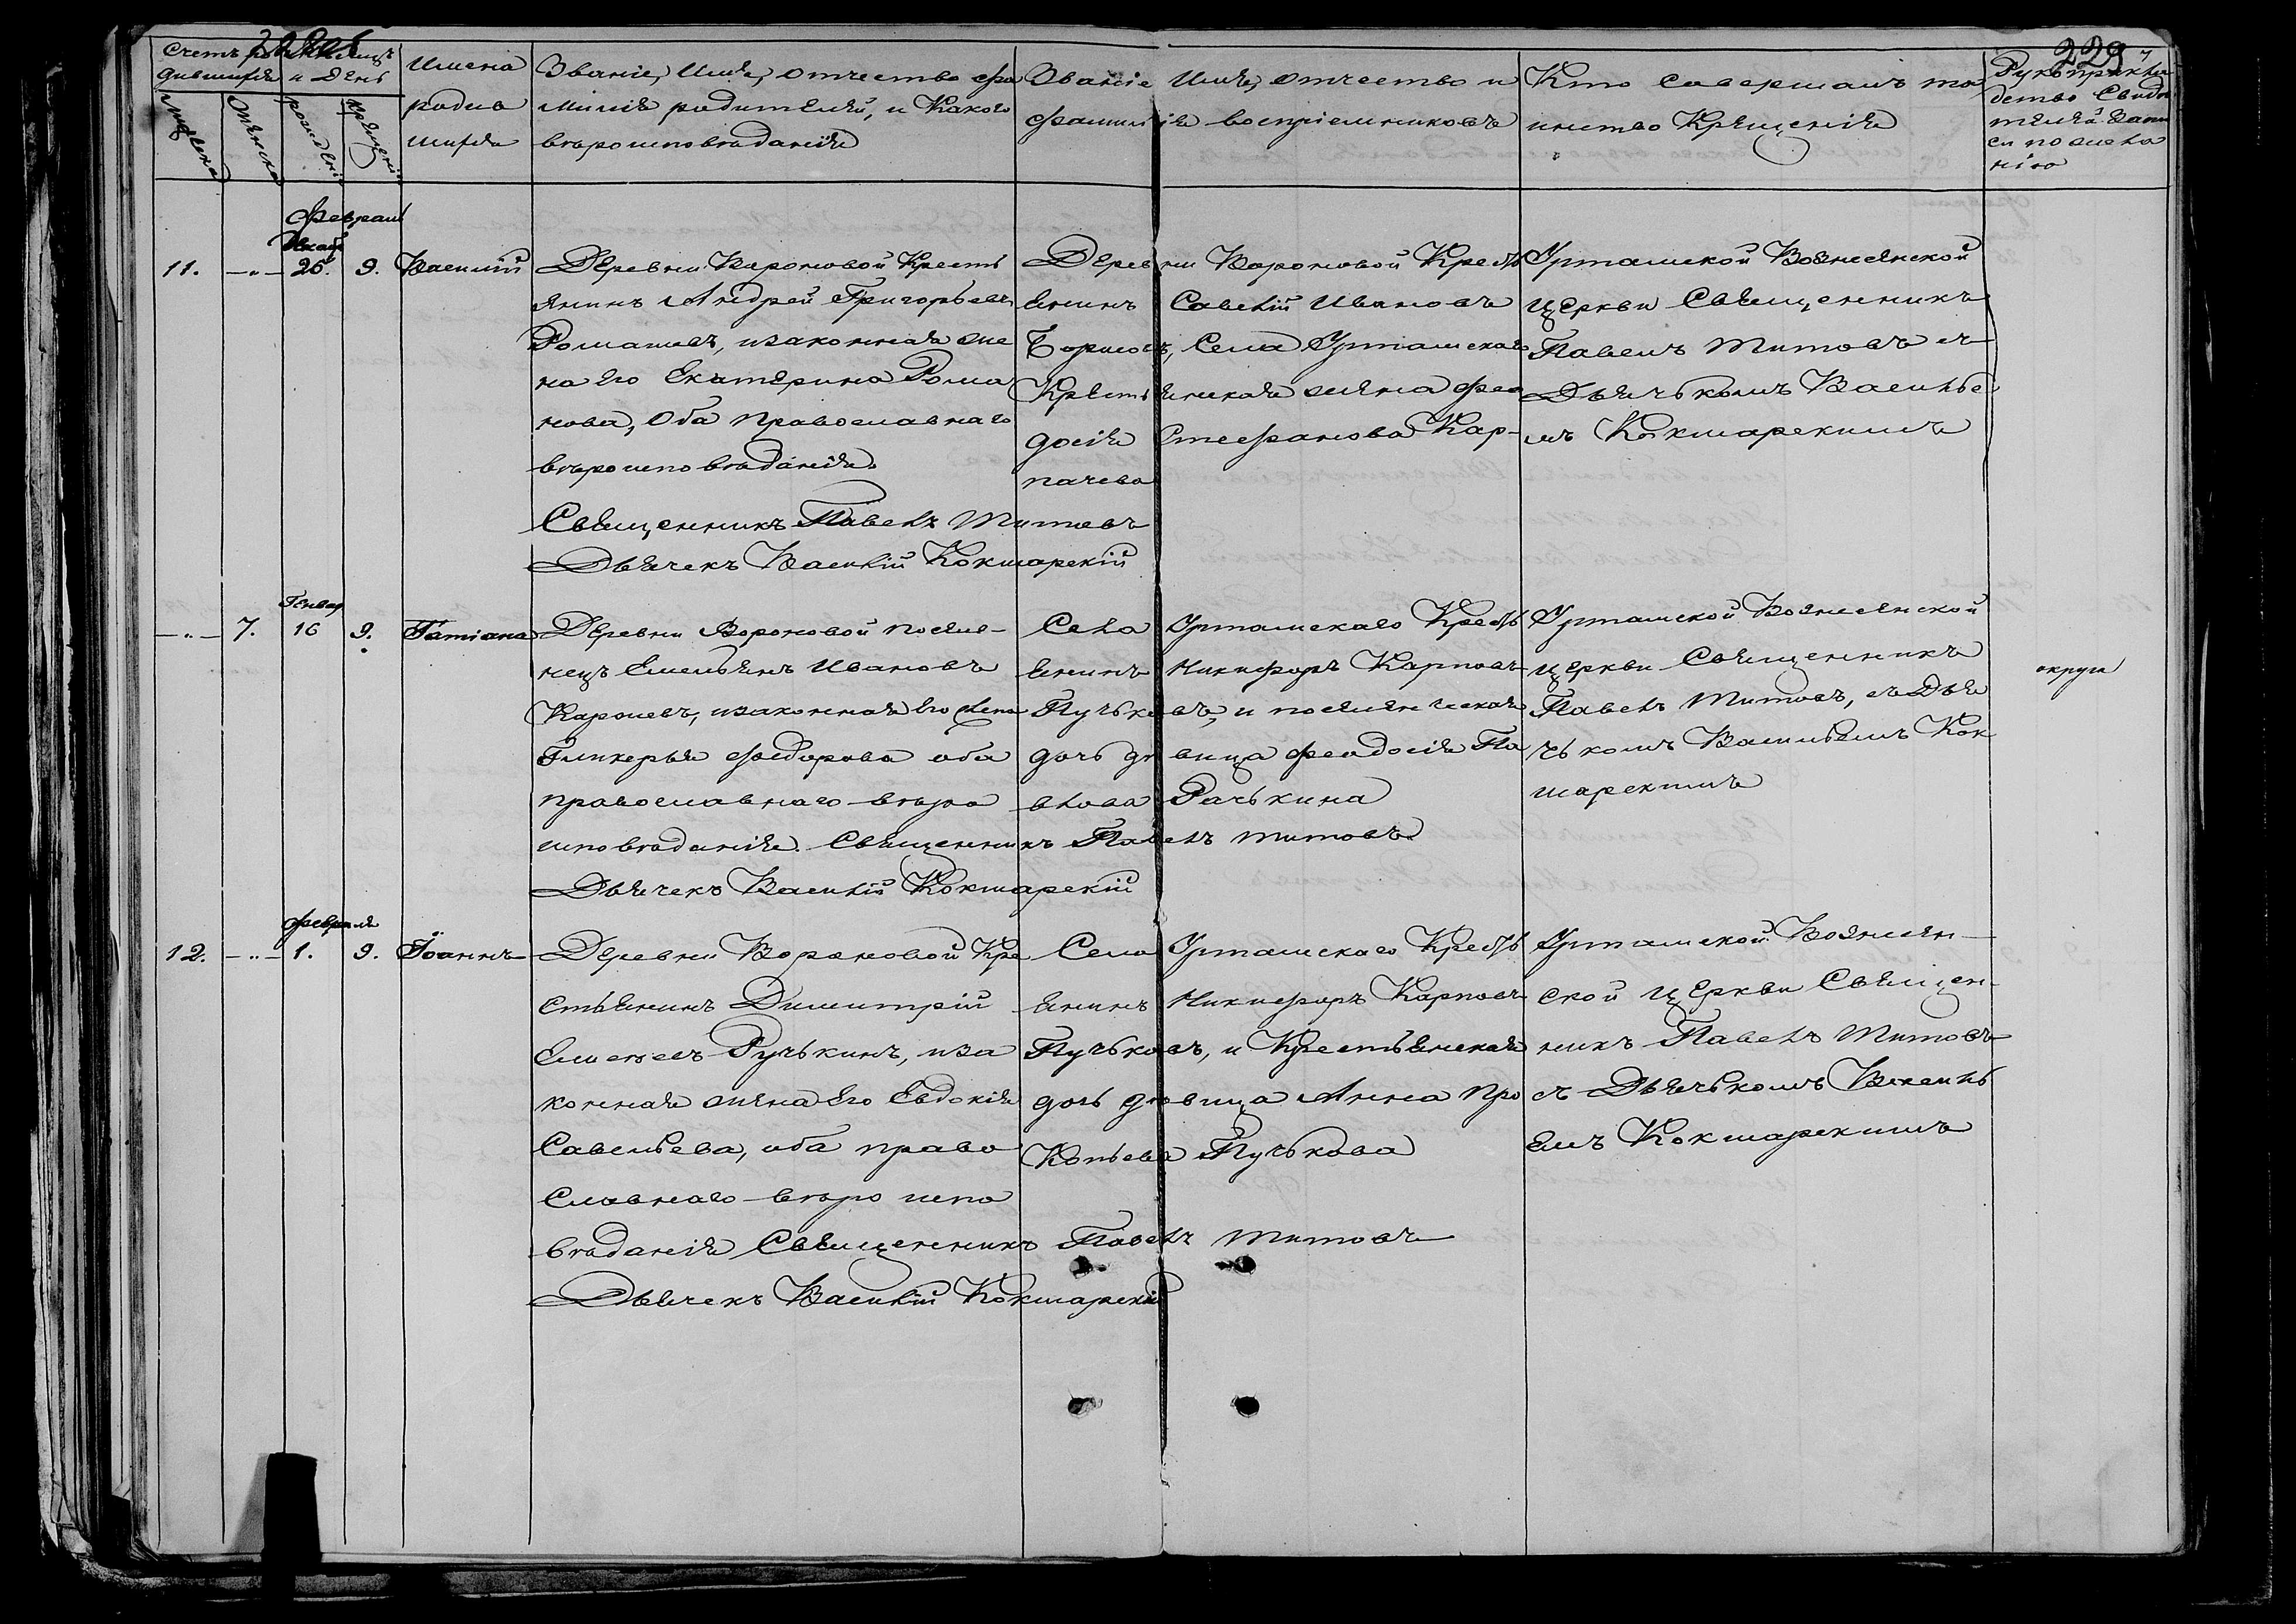 229
Счетъ ро
дившихся
Мѣсяцъ
и день
Мужеска
Женска
рожденія
крещенія
Имена
родив
шихся
Званіе, Имя, отчество фа
милія родителей, и Какого
вѣроисповѣданія
Званіе Имя, отчество и
фамилія воспріемниковъ
Кто совершалъ та
инство Крещенія
Рукоприкла
детво Свидѣ
телей запи
си по жела
нію
февраль
Декаб
11. —„— 26. 9. Василій
Деревни Вороновой Кресть
янинъ Андрей Григорьевъ
Романовъ, изаконная же
на Его Екатерина Рома
нова, Оба Православнаго
вѣроисповѣданія.
Священникъ Павелъ Титовъ
Дьячекъ Василій Кокшарскій
Деревни Вороновой Кресть
янинъ Савелій Ивановъ
Борисовъ, Села Уртамскаго
Крестьянская жена Фео
досія Стефанова Кар-
пачева
Уртамской Вознесенской
Церкви Священникъ
Павелъ Титовъ съ
Дьячькомъ Василье
мъ Кокшарскимъ
Генвар
—„— 7. 16 9. Татіана
Деревни Вороновой поселе-
нецъ Емельянъ Ивановъ
Карпиевъ, изаконная Его жена
Гликерья Федорова оба
православнаго вѣро
исповѣданія. Священникъ Павелъ Титовъ
Дьячекъ Василій Кокшарскій
Села Уртамскаго Кресть
янинъ Никифоръ Карповъ
Пучьковъ, и поселенческая
дочь дѣвица Феодосія Па
влова Рачькина
Уртамской Вознесенской
церкви Священникъ
Павелъ Титовъ, съ Дья
чькомъ Васильемъ Кок
шарскимъ
округи
февраля
12. —„— 1. 9. Іоаннъ
Деревни Вороновой Кре
стьянинъ Димитрій
Елисеевъ Ручькинъ, иза
конная жена Его Евдокія
Савельева, оба право
славнаго вѣро испо
вѣданія Священникъ Павелъ Титовъ
Дьячекъ Василій Кокшарскій
Села Уртамскаго Кресть
янинъ Никифоръ Карповъ
Пучьковъ, и Крестьянская
дочь дѣвица Анна Про
Копьева Пучькова
Уртамской Вознесен-
ской церкви Священ-
никъ Павелъ Титовъ
съ Дьячькомъ Василь
емъ Кокшарскимъ